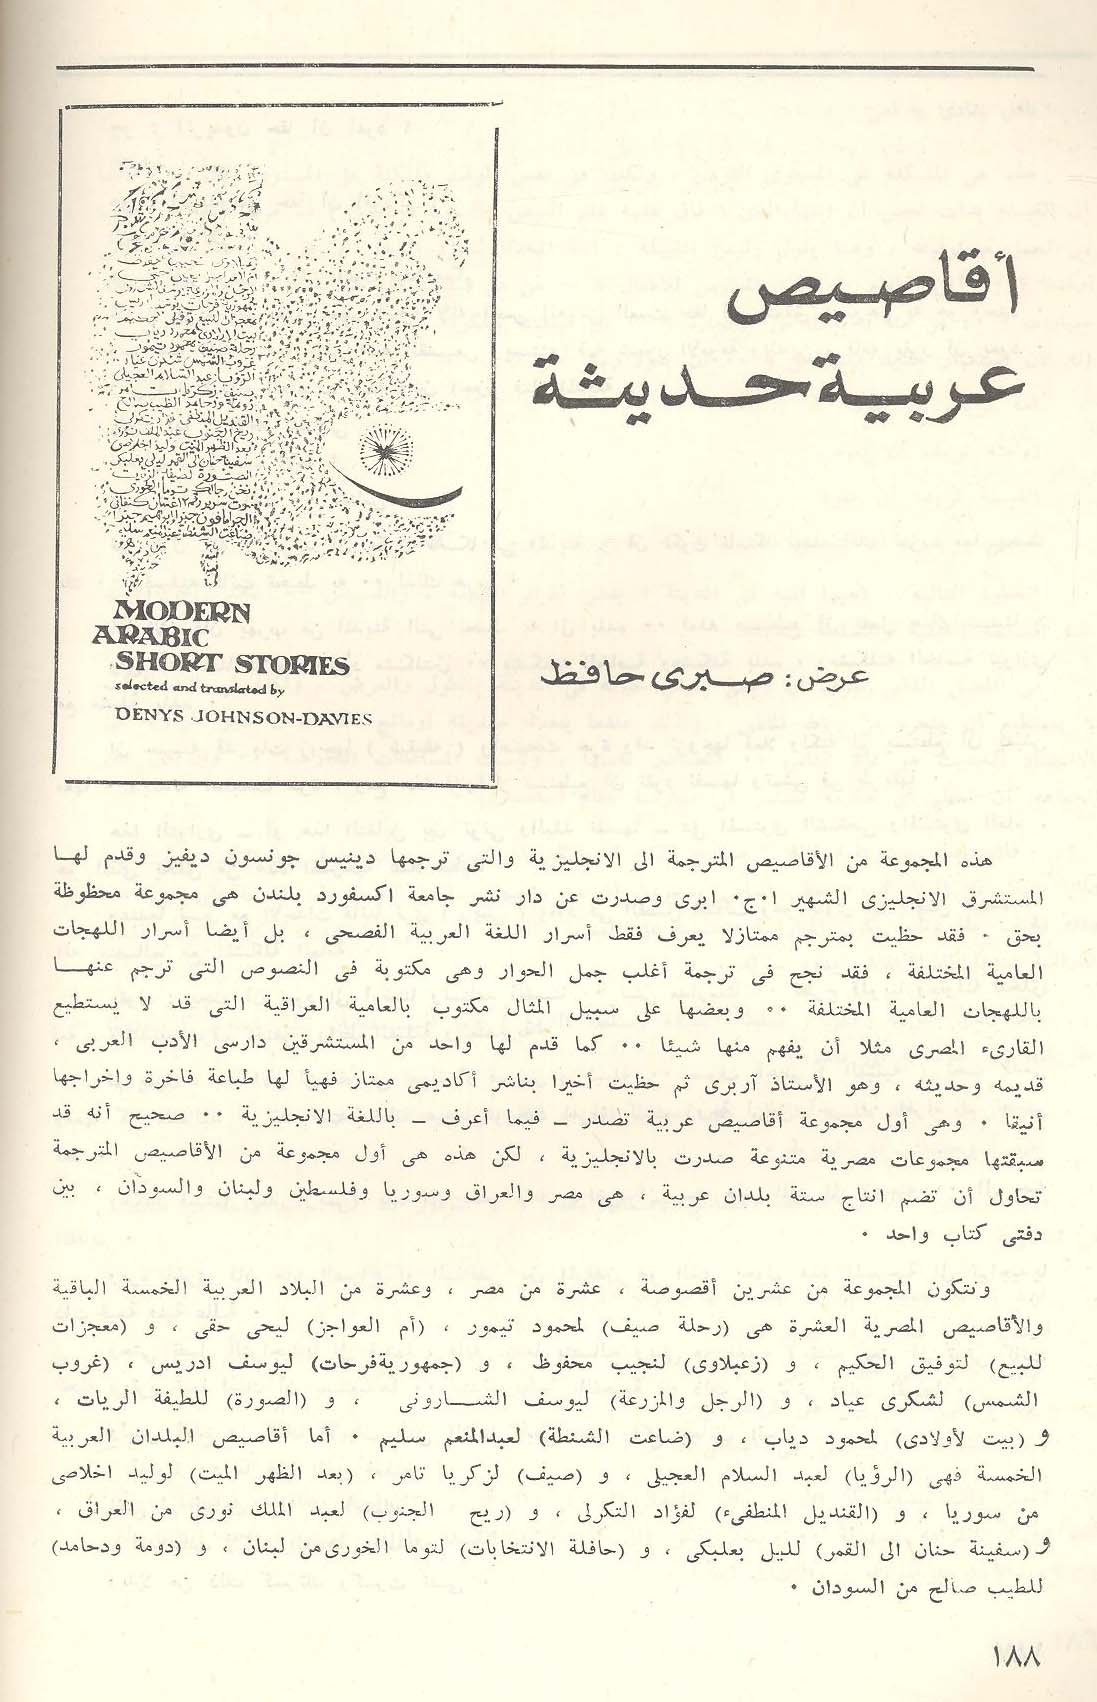 أقاصيص
عربية حديثة
MODERN
ARABIC
SHORT STORIES
selected and translated by
DENYS JOHNSON-DAVIES
عرض: صبرى حافظ
هذه المجموعة من الأقاصيص المترجمة الى الانجليزية والتى ترجمها دينيس جونسون ديفيز وقدم لها
المستشرق الانجليزى الشهير ا٠ج٠ ابرى وصدرت عن دار نشر جامعة اكسفورد بلندن هى مجموعة محظوظة
بحق ٠ فقد حظيت بمترجم ممتازلا يعرف فقط أسرار اللغة العربية الفصحى ، بل أيضا أسرار اللهجات
العامية المختلفة ، فقد نجح فى ترجمة أغلب جمل الحوار وهى مكتوبة فى النصوص التى ترجم عنها
باللهجات العامية المختلفة ٠٠ وبعضها على سبيل المثال مكتوب بالعامية العراقية التى قد لا يستطيع
القارىء المصرى مثلا أن يفهم منها شيئا ٠٠ كما قدم لها واحد من المستشرقين دارسى الأدب العربى ،
قديمه وحديثه ، وهو الأستاذ آربرى ثم حظيت أخيرا بناشر أكاديمى ممتاز فهيأ لها طباعة فاخرة واخراجها
أنيقا ٠ وهى أول مجموعة أقاصيص عربية تصدر ــ فيما أعرف ــ باللغة الانجليزية ٠٠ صحيح أنه قد
سبقتها مجموعات مصرية متنوعة صدرت بالانجليزية ، لكن هذه هى أول مجموعة من الأقاصيص المترجمة
تحاول أن تضم انتاج ستة بلدان عربية ، هى مصر والعراق وسوريا وفلسطين ولبنان والسودان ، بين
دفتى كتاب واحد ٠
وتتكون المجموعة من عشرين أقصوصة ، عشرة من مصر ، وعشرة من البلاد العربية الخمسة الباقية
والأقاصيص المصرية العشرة هى (رحلة صيف) لمحمود تيمور ، (أم العواجز) ليحى حقى ، و (معجزات
للبيع) لتوفيق الحكيم ، و (زعبلاوى) لنجيب محفوظ ، و (جمهوريةفرحات) ليوسف ادريس ، (غروب
الشمس) لشكرى عياد ، و (الرجل والمزرعة) ليوسف الشارونى ، و (الصورة) للطيفة الزيات ،
و (بيت لأولادى) لمحمود دياب ، و (ضاعت الشنطة) لعبدالمنعم سليم ٠ أما أقاصيص البلدان العربية
الخمسة فهى (الرؤيا) لعبد السلام العجيلى ، و (صيف) لزكريا تامر ، (بعد الظهر الميت) لوليد اخلاصى
من سوريا ، و (القنديل المنطفىء) لفؤاد التكرلى ، و (ريح الجنوب) لعبد الملك نورى من العراق ،
و (سفينة حنان الى القمر) لليل بعلبكى ، و (حافلة الانتخابات) لتوما الخورى من لبنان ، و (دومة ودحامد)
للطيب صالح من السودان ٠
١٨٨